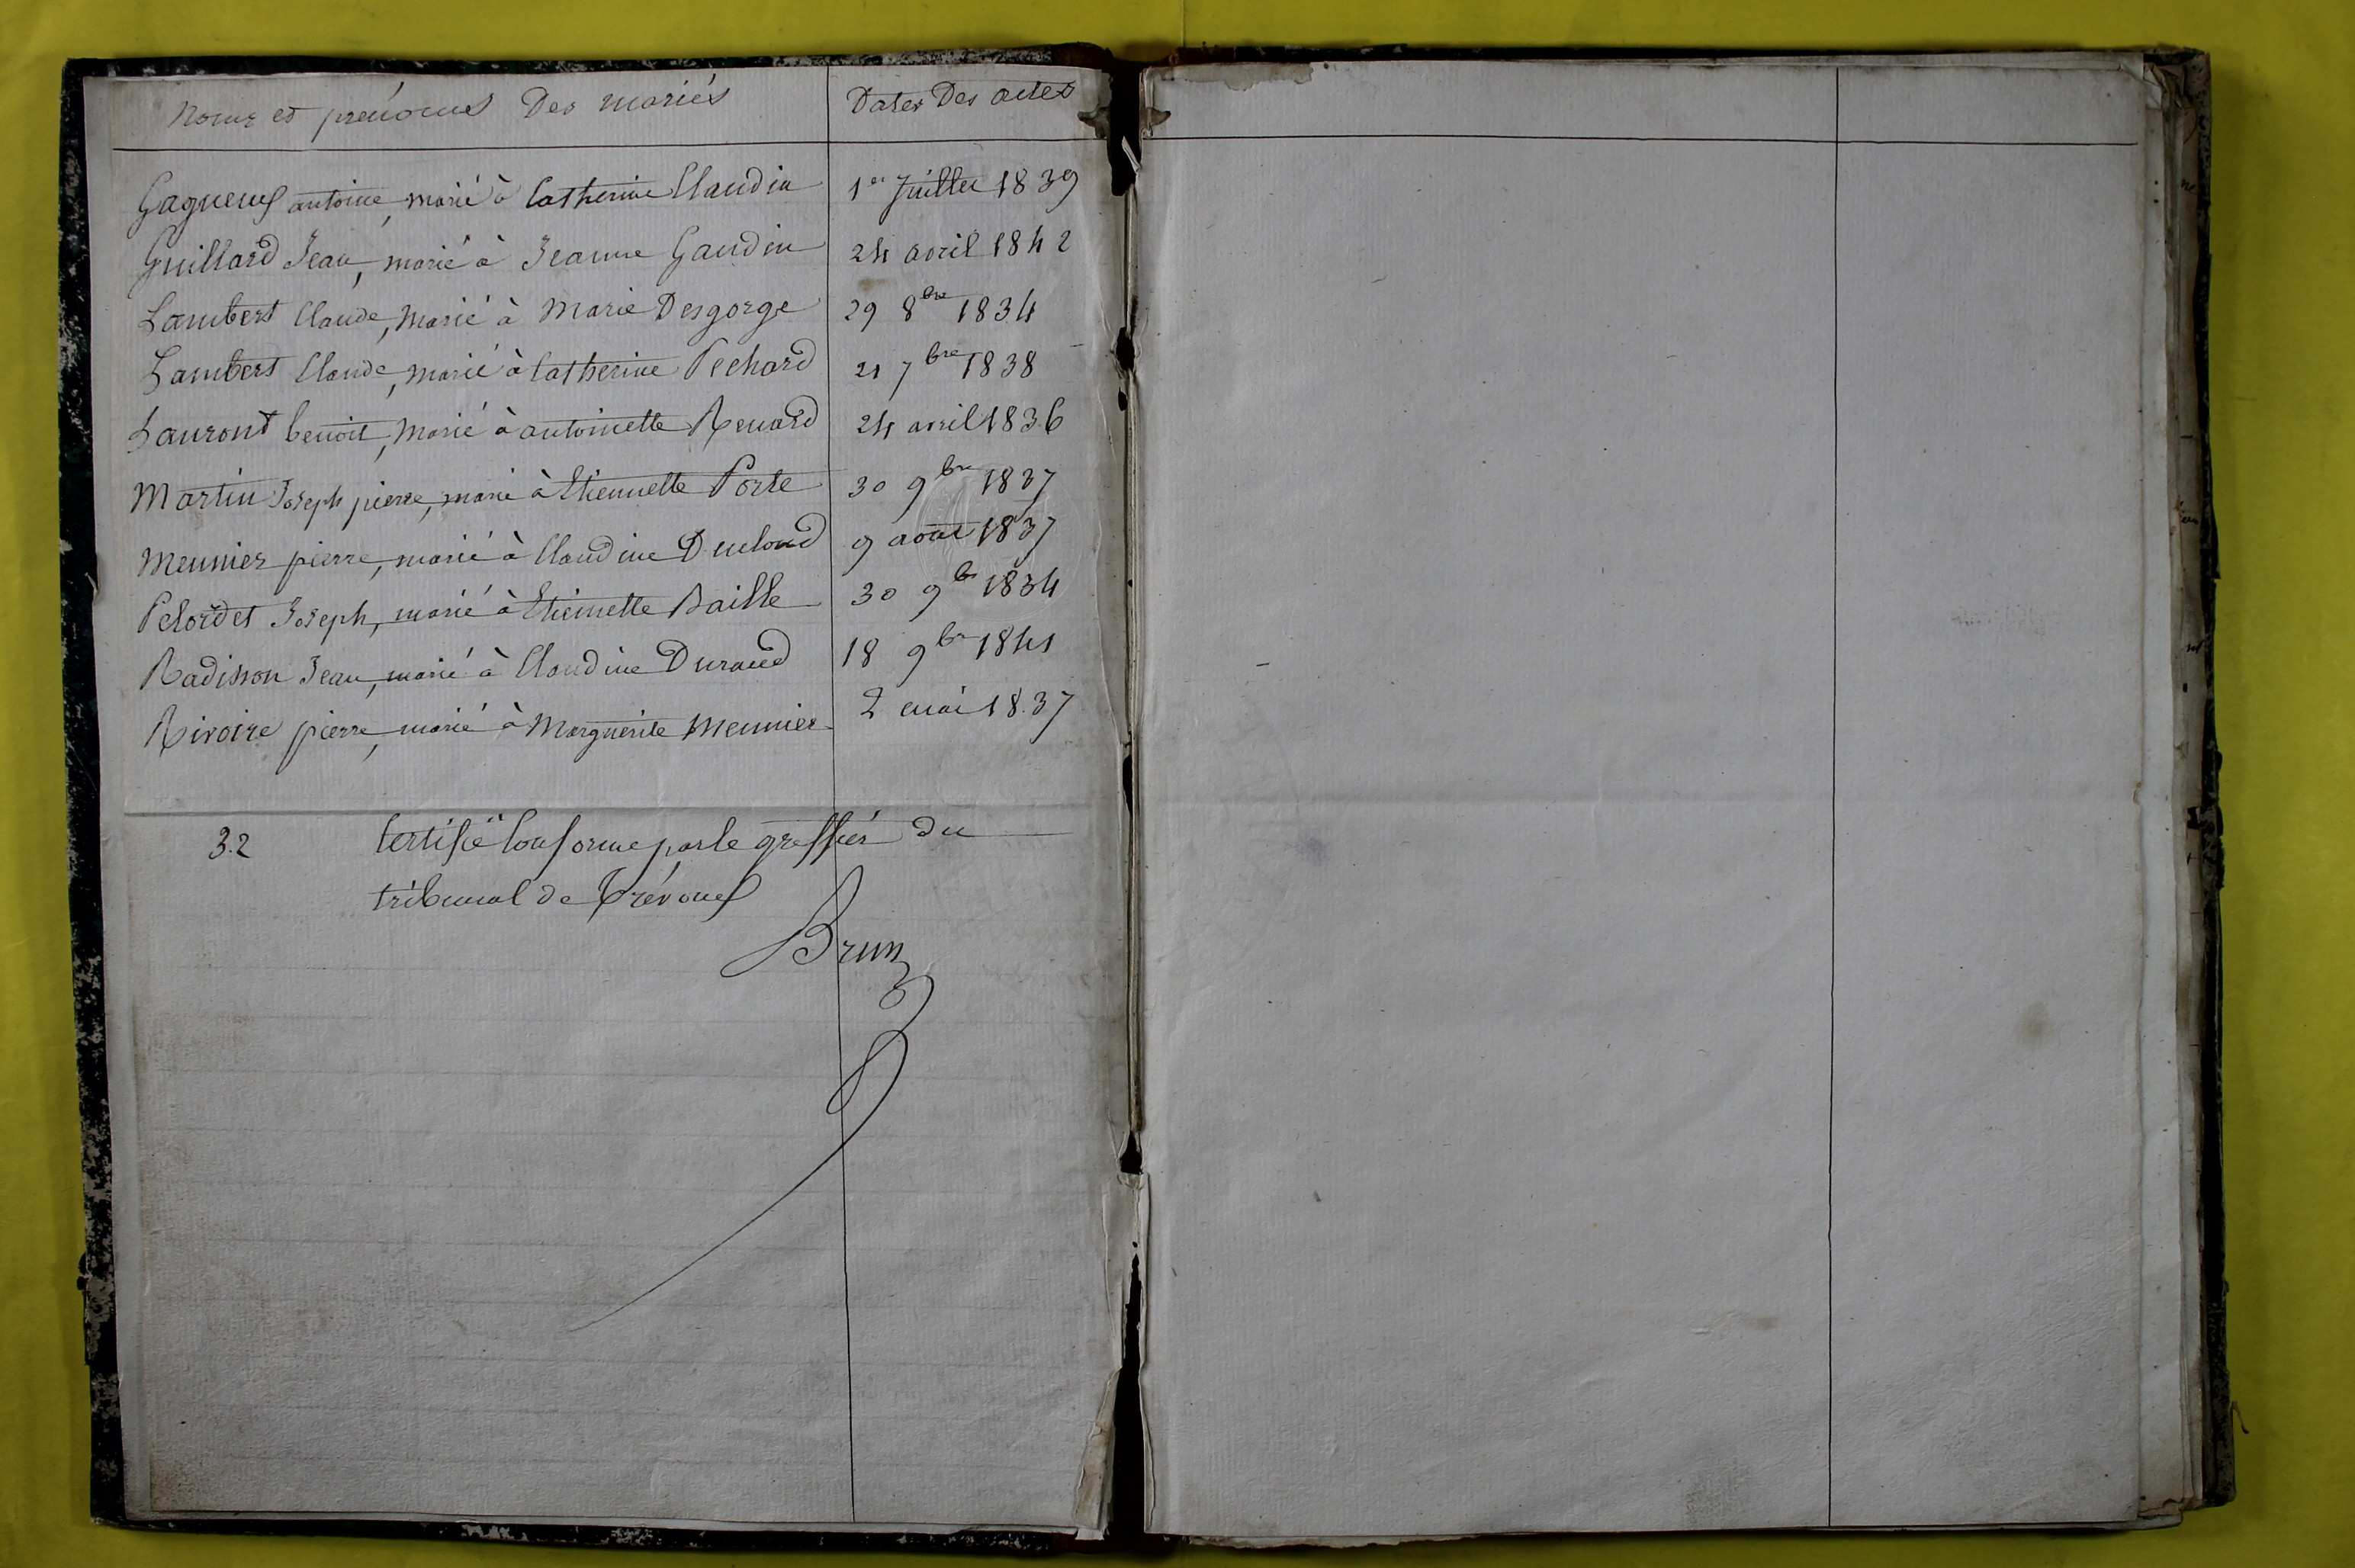 Noms et prénoms Des mariés Dates Des actes
Gagneux antoine, marié à Catherine Claudin 1er Juillet 1839
Guillard Jean, marié à Jeanne Gaudin 24 avril 1842
Lambert Claude, marié à Marie Desgorge 29 8bre 1834
Lambert Claude, marié à Catherine Pechard 21 7bre 1838
Lauront benoit, marié à antoinette Renard 24 avril 1836
Martin Joseph pierre, marié à Etiennette Porte 30 9bre 1837
Meunier pierre, marié à Claudine Ducloud 9 août 1837
Pelordet Joseph, marié à Etiennette Baille 30 9b 1834
Radisson Jean, marié à Claudine Durand 18 9br 1841
Rivoire pierre, marié à Marguerite Meunier 2 mai 1837
32 Certifié Conforme par le greffier du
tribunal de Trévoux
Brun